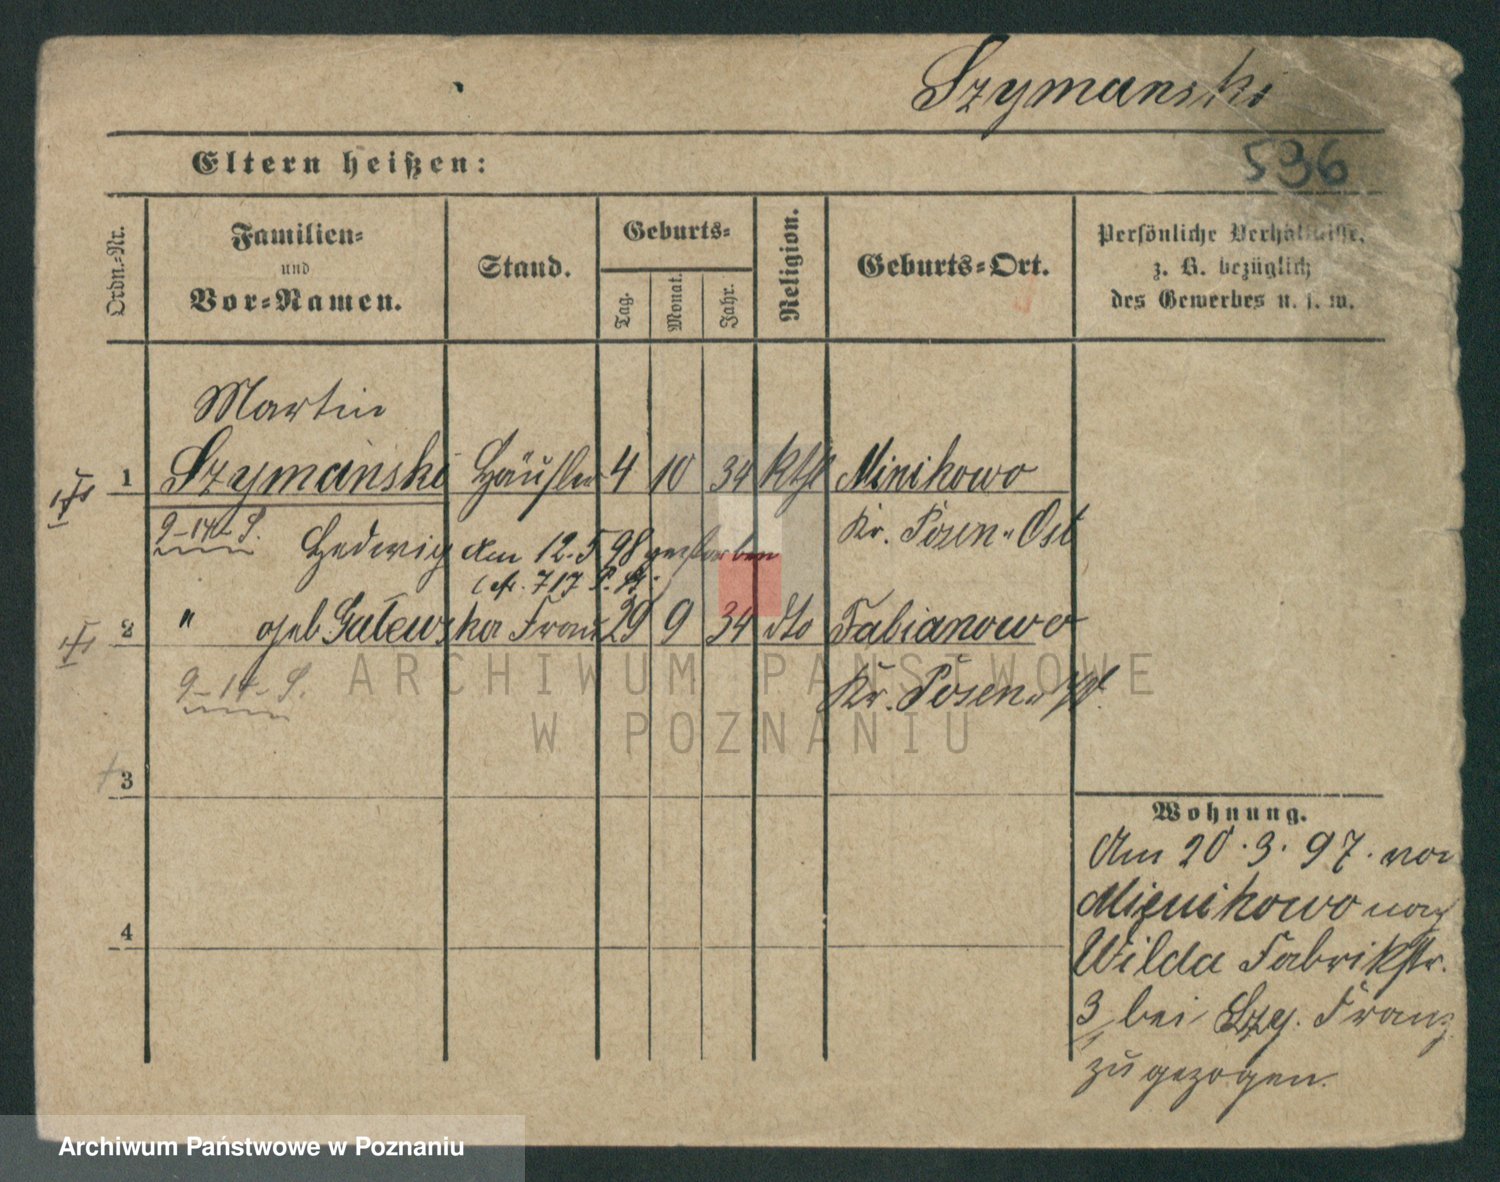 Szymanski
Eltern heißen:
536
Ordn.-Nr.
Familien-
und
Vor-Namen.
Stand.
Geburts-
Tag.
Monat.
Jahr.
Religion.
Geburts-Ort.
Persönliche Verhältnisse,
z. B. bezüglich
des Gewerbes u. s. w.
Martin
1 Szymański Häusler 4 10 34 kthl Minikowo
9-14-S. Kr. Posen-Ost
Hedwig am 12.5.98 gestorben
(N. 717 P. St.
2 " geb Galewska Frau 29 9 34 dto Fabianowo
9-14-S. Kr. Posen-W.
3
4
Wohnung.
Am 20.3.97. von
Minikowo nach
Wilda Fabrikstr.
3, bei Szy. Franz
zugezogen.
ARCHIWUM PAŃSTWOWE
W POZNANIU
Archiwum Państwowe w Poznaniu